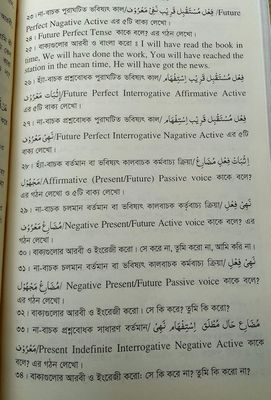 ২৩। না-বাচক পুরাঘটিত ভবিষ্যৎ কাল/فِعْل مُسْتَقْبِل قَرِيْب نَفِىْ مَعْرُوْف/Future
Perfect Nagative Active এর ৫টি বাক্য লেখো।
২৪। Future Perfect Tense কাকে বলে? এর গঠন লেখো।
২৫। বাক্যগুলোর আরবী ও বাংলা করো ঃ I will have read the book in
time, We will have done the work, You will have reached the
station in the mean time, He will have got the news.
২৬। হাঁ-বাচক প্রশ্নবোধক পুরাঘটিত ভবিষ্যৎ কাল/فِعْل مُسْتَقْبِل قَرِيْب اِسْتِفْهَام
اِثْبَات مَعْرُوْف/Future Perfect Interrogative Affirmative Active
এর ৫টি বাক্য লেখো।
২৭। না-বাচক প্রশ্নবোধক পুরাঘটিত ভবিষ্যৎ কাল/فِعْل مُسْتَقْبِل قَرِيْب اِسْتِفْهَام
نَهِىْ مَعْرُوْف/Future Perfect Interrogative Nagative Active এর ৫টি
বাক্য লেখো।
২৮। হাঁ-বাচক বর্তমান বা ভবিষ্যৎ কালবাচক কর্মবাচ্য ক্রিয়া/اِثْبَات فِعْل مُضَارِع
مَجْهُوْل/Affirmative (Present/Future) Passive voice কাকে বলে?
এর গঠন লেখো ও ৫টি বাক্য লেখো।
২৯। না-বাচক চলমান বর্তমান বা ভবিষ্যৎ কালবাচক কর্তৃবাচ্য ক্রিয়া/نَهِىْ فِعْل
مُضَارِع مَعْرُوْف/Negative Present/Future Active voice কাকে বলে? এর
গঠন লেখো।
৩০। বাক্যগুলোর আরবী ও ইংরেজী করো। সে করে না, তুমি করো না, আমি করি না।
৩১। না-বাচক চলমান বর্তমান বা ভবিষ্যৎ কালবাচক কর্মবাচ্য ক্রিয়া/نَهِىْ فِعْل
مُضَارِع مَجْهُوْل/ Negative Present/Future Passive voice কাকে বলে?
এর গঠন লেখো।
৩২। বাক্যগুলোর আরবী ও ইংরেজী করো। সে কি করে? তুমি কি করো?
৩৩। না-বাচক প্রশ্নবোধক সাধারণ বর্তমান/مُضَارِع حَال مُطْلَق اِسْتِفْهَام نَهِىْ
مَعْرُوْف/Present Indefinite Interrogative Negative Active কাকে
বলে? এর গঠন লেখো।
৩৪। বাক্যগুলোর আরবী ও ইংরেজী করো: সে কি করে না? তুমি কি করো না?